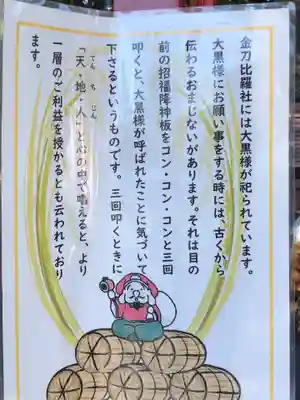 金刀比羅社には大黒様が祀られています。
大黒様にお願い事をする時には、古くから
伝わるおまじないがあります。それは目の
前の招福障神板をコン・コン・コンと三回
叩くと、大黒様が呼ばれたことに気づいて
下さるというものです。三回叩くときに
「天・地・人」と心の中で唱えると、より
てん ち じん
一層のご利益を授かるとも云われており
ます。